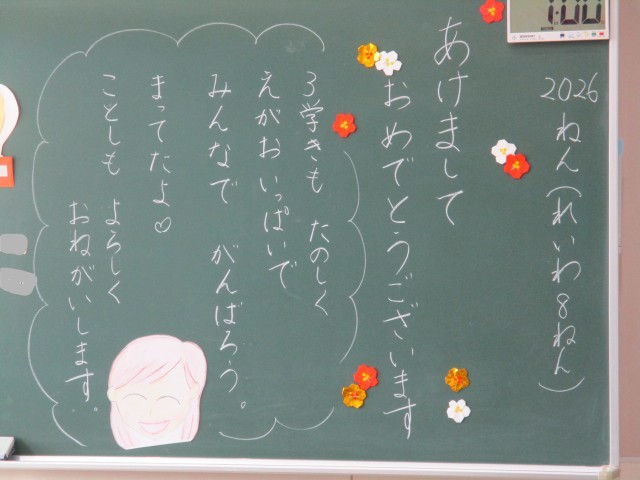 2026ねん(れいわ8ねん)
あけまして
おめでとうございます
3学きも たのしく
えがおいっぱいで
みんなで がんばろう。
まってたよ♡
ことしも よろしく
おねがいします。
1:00